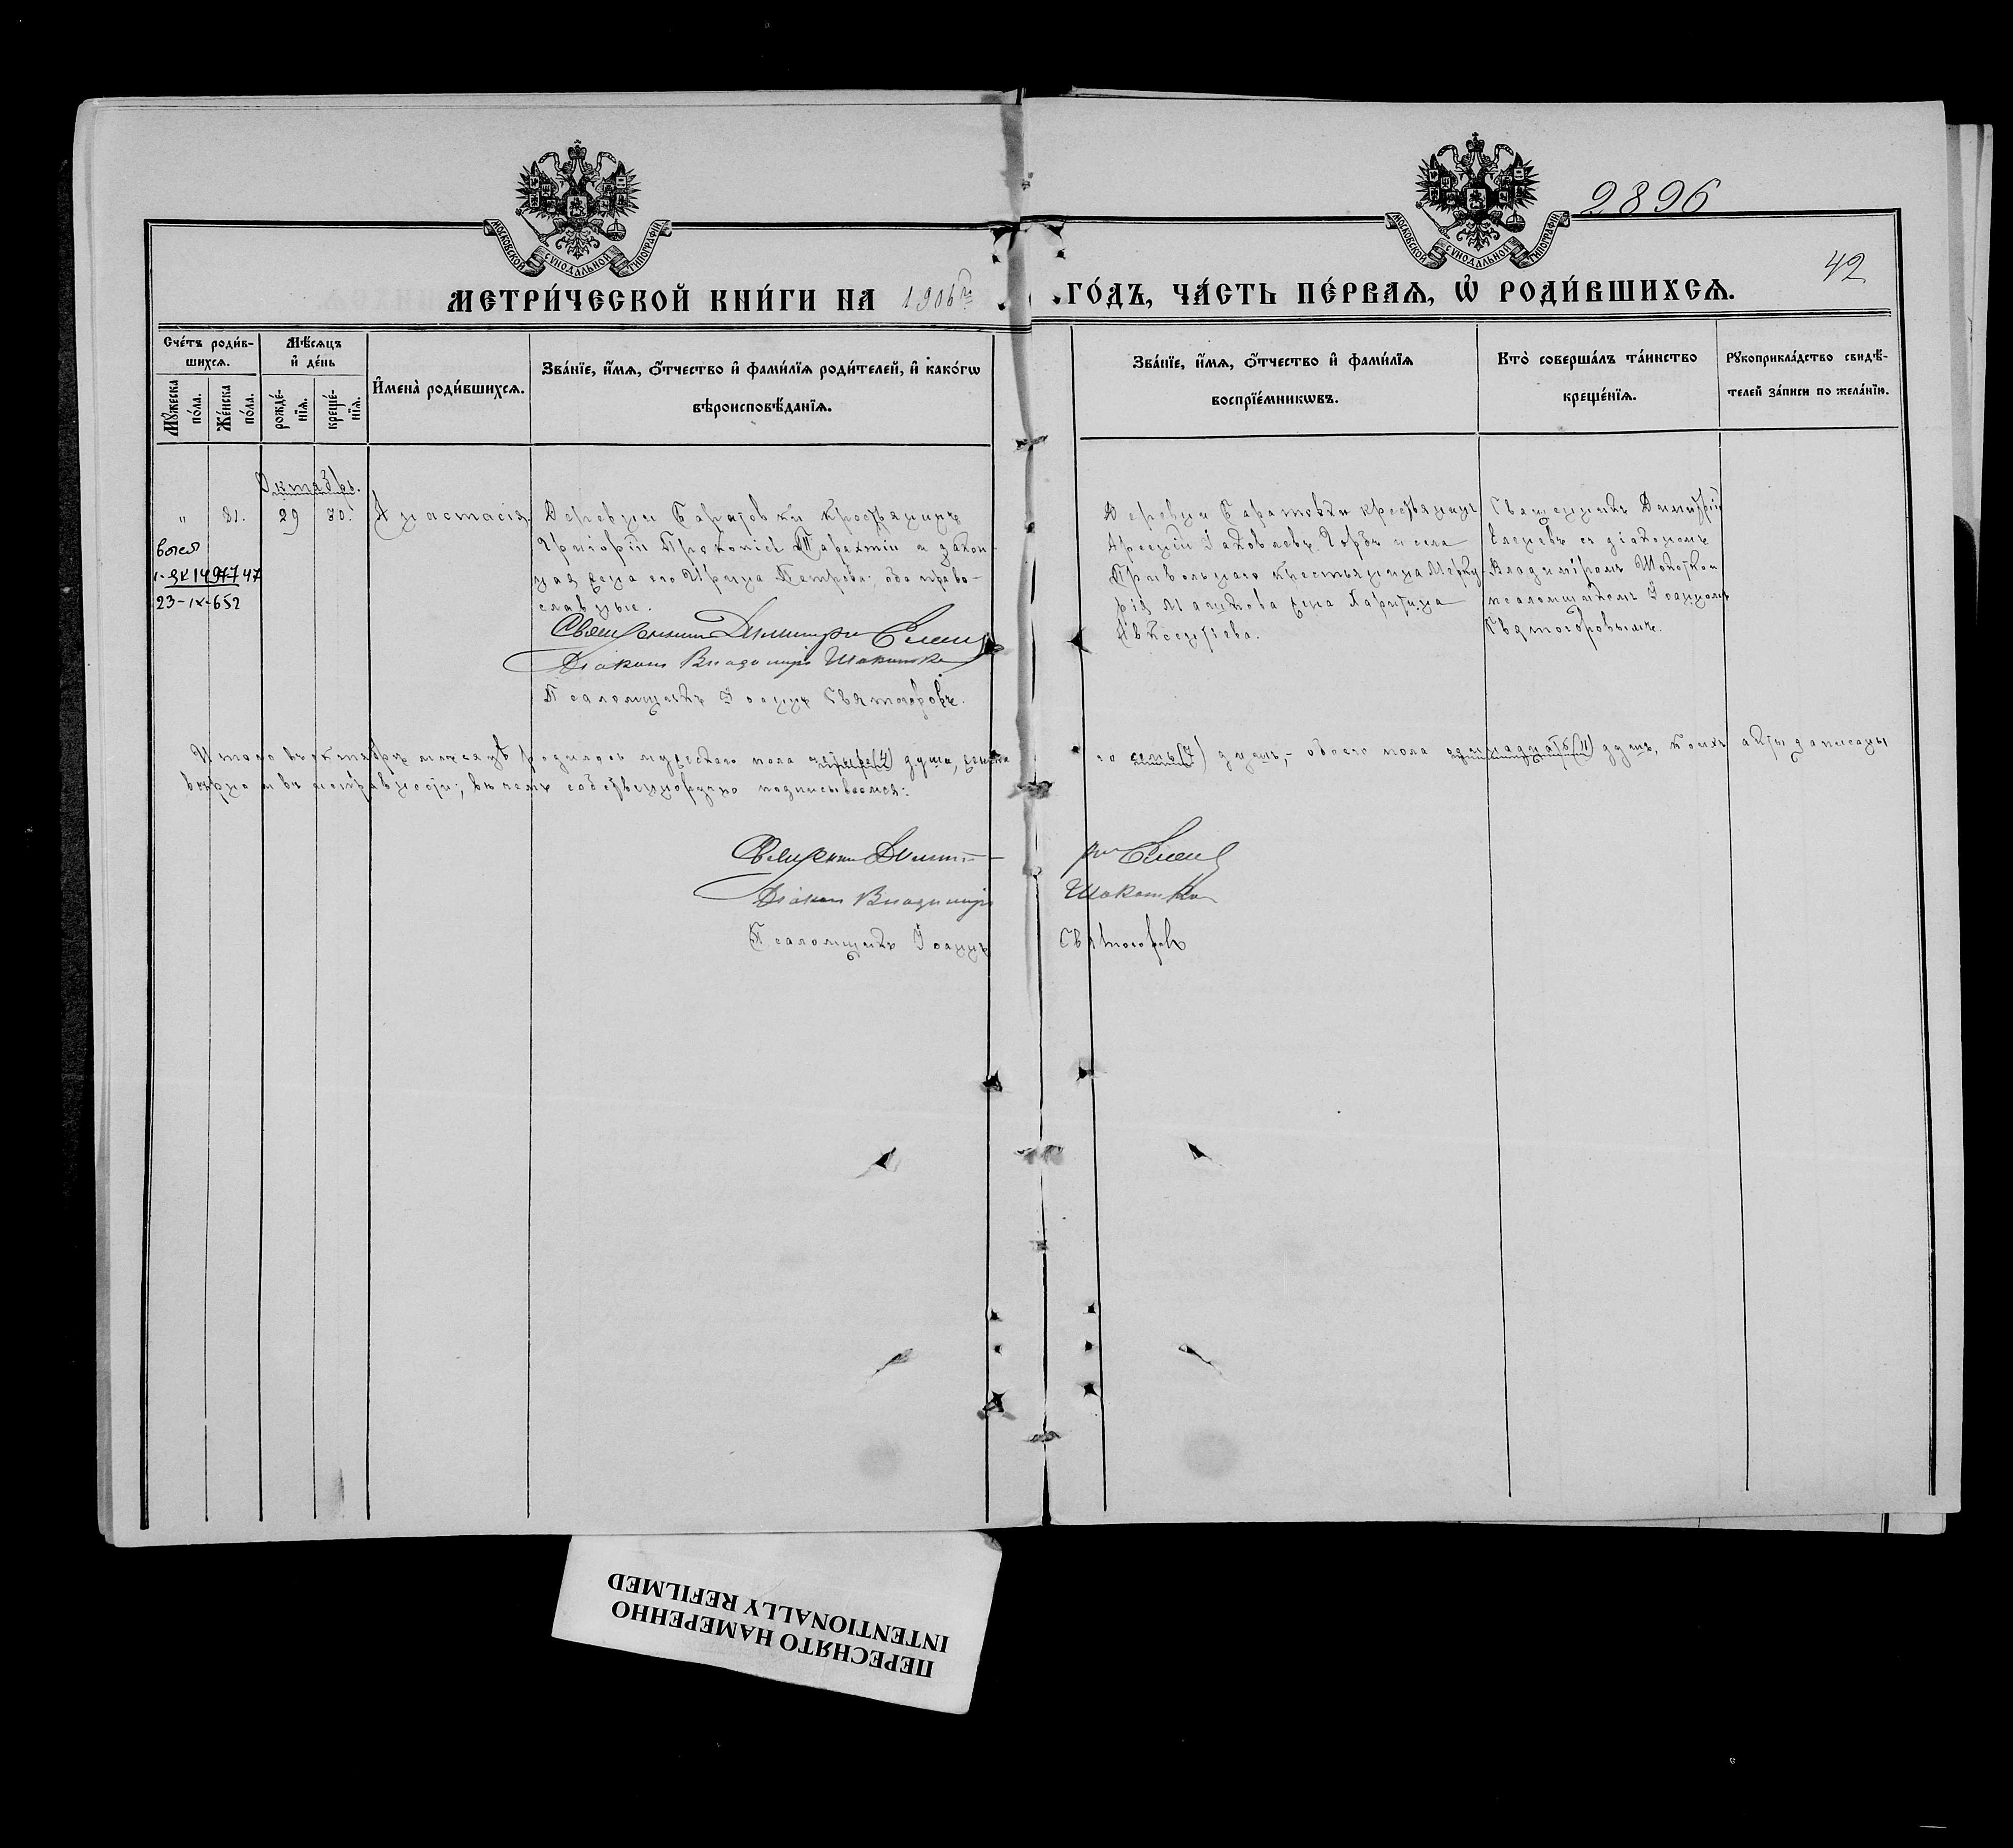 МОСКОВСКОЙ СѴНОДАЛЬНОЙ ТИПОГРАФІИ
МОСКОВСКОЙ СѴНОДАЛЬНОЙ ТИПОГРАФІИ
2896
42
МЕТРИ́ЧЕСКОЙ КНИ́ГИ НА 1906й
ГО́ДЪ, ЧА́СТЬ ПЕ́РВАѦ, Ѡ҆ РОДИ́ВШИХСѦ.
Сче́тъ роди́в-
шихсѧ.
Мѣ́сѧцъ
и҆ де́нь
Мꙋ́жеска по́ла.
Же́нска по́ла.
рожде́-
нїѧ.
креще́-
нїѧ.
И҆мена̀ роди́вшихсѧ.
Зва́нїе, и҆́мѧ, ѻ҆́тчество и҆ фами́лїѧ роди́телей, и҆ како́гѡ
вѣроисповѣ́данїѧ.
Зва́нїе, и҆́мѧ, ѻ҆́тчество и҆ фами́лїѧ
воспрїе́мникѡвъ.
Кто̀ соверша́лъ та́инство
креще́нїѧ.
Рꙋкоприкла́дство свидѣ́-
телей за́писи по жела́нїю.
Октябрь.
" 81. 29 30. Анастасія
Деревни Саратовки крестьянинъ
Григорій Прокопіев и закон-
ная жена его Ирина Петрова; оба право-
славные.
Священникъ Димитрій
Діаконъ Владиміръ
Псаломщикъ Іоаннъ Святогоровъ.
23-IX-652
Деревни Саратовки крестьянинъ
Арсеній Іаковлевъ и села
Привольнаго крестьянина Мерку-
рія жена Харитина
Авксентіева.
Священникъ Димитрій
съ діакономъ
Владиміромъ
псаломщикомъ Іоанномъ
Святогоровымъ.
Итого въ октябрѣ мѣсяцѣ родилось мужеска пола четыре (4) душы, женска
го семь (7) душъ, - обоего пола одиннадцать (11) душъ, коихъ акты записаны
вѣрно и въ исправности; въ чемъ собственноручно подписываемся:
Священникъ Димит-
рій
Діаконъ Владиміръ
Псаломщикъ Іоаннъ
Святогоровъ
ПЕРЕСНЯТО НАМЕРЕННО
INTENTIONALLY REFILMED